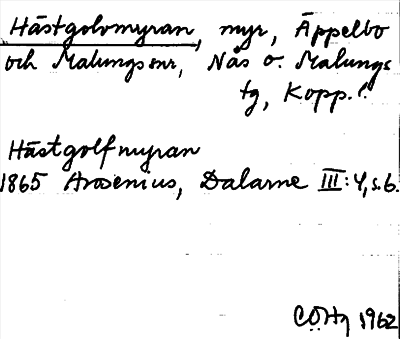 Hästgolvmyran, myr, Äppelbo
och Malungs snr, Nås o. Malungs
tg, Kopp. l.
Hästgolfmyran
1865 Arosenius, Dalarne III:4, s. 6.
CÖHg 1962